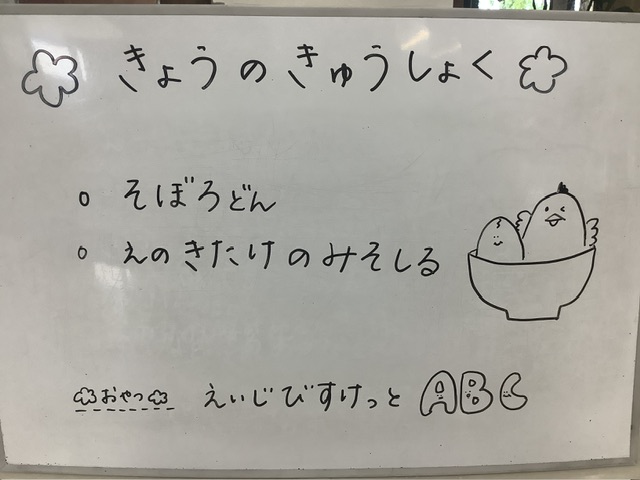 きょうのきゅうしょく
そぼろどん
えのきたけのみそしる
おやつ えいじびすけっと ABC